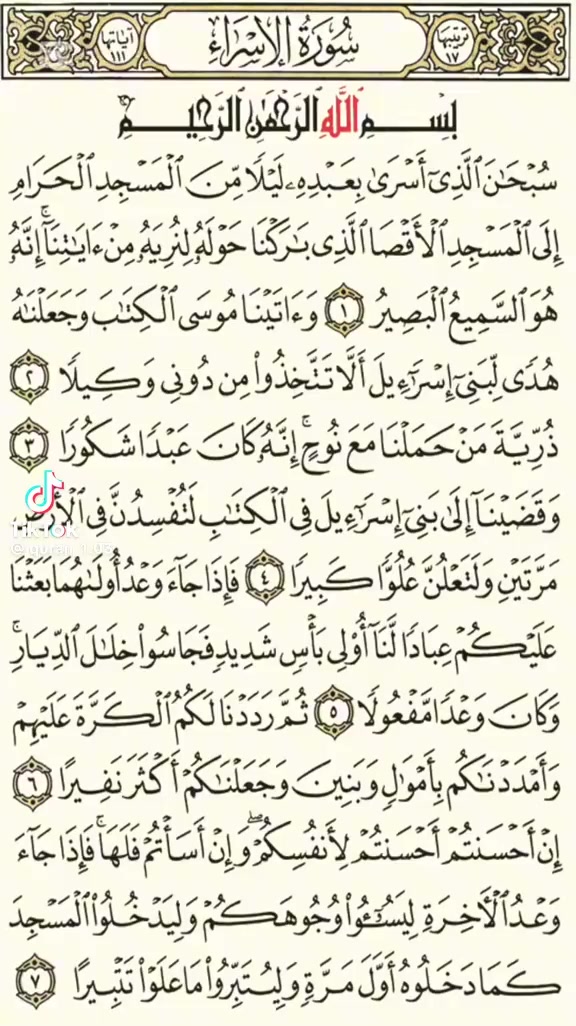 ترتيبها ١٧ سُورَةُ الإِسْرَاءِ آياتها ١١١
بِسْمِ ٱللَّهِ ٱلرَّحْمَٰنِ ٱلرَّحِيمِ
سُبْحَٰنَ ٱلَّذِىٓ أَسْرَىٰ بِعَبْدِهِۦ لَيْلًا مِّنَ ٱلْمَسْجِدِ ٱلْحَرَامِ
إِلَى ٱلْمَسْجِدِ ٱلْأَقْصَا ٱلَّذِى بَٰرَكْنَا حَوْلَهُۥ لِنُرِيَهُۥ مِنْ ءَايَٰتِنَآ ۚ إِنَّهُۥ
هُوَ ٱلسَّمِيعُ ٱلْبَصِيرُ ١ وَءَاتَيْنَا مُوسَى ٱلْكِتَٰبَ وَجَعَلْنَٰهُ
هُدًى لِّبَنِىٓ إِسْرَٰٓءِيلَ أَلَّا تَتَّخِذُوا۟ مِن دُونِى وَكِيلًا ٢
ذُرِّيَّةَ مَنْ حَمَلْنَا مَعَ نُوحٍ ۚ إِنَّهُۥ كَانَ عَبْدًا شَكُورًا ٣
وَقَضَيْنَآ إِلَىٰ بَنِىٓ إِسْرَٰٓءِيلَ فِى ٱلْكِتَٰبِ لَتُفْسِدُنَّ فِى ٱلْأَرْضِ
TikTok
@quran_1.03
مَرَّتَيْنِ وَلَتَعْلُنَّ عُلُوًّا كَبِيرًا ٤ فَإِذَا جَآءَ وَعْدُ أُولَىٰهُمَا بَعَثْنَا
عَلَيْكُمْ عِبَادًا لَّنَآ أُو۟لِى بَأْسٍ شَدِيدٍ فَجَاسُوا۟ خِلَٰلَ ٱلدِّيَارِ ۚ
وَكَانَ وَعْدًا مَّفْعُولًا ٥ ثُمَّ رَدَدْنَا لَكُمُ ٱلْكَرَّةَ عَلَيْهِمْ
وَأَمْدَدْنَٰكُم بِأَمْوَٰلٍ وَبَنِينَ وَجَعَلْنَٰكُمْ أَكْثَرَ نَفِيرًا ٦
إِنْ أَحْسَنتُمْ أَحْسَنتُمْ لِأَنفُسِكُمْ ۖ وَإِنْ أَسَأْتُمْ فَلَهَا ۚ فَإِذَا جَآءَ
وَعْدُ ٱلْءَاخِرَةِ لِيَسُۥٓـُٔوا۟ وُجُوهَكُمْ وَلِيَدْخُلُوا۟ ٱلْمَسْجِدَ
كَمَا دَخَلُوهُ أَوَّلَ مَرَّةٍ وَلِيُتَبِّرُوا۟ مَا عَلَوْا۟ تَتْبِيرًا ٧